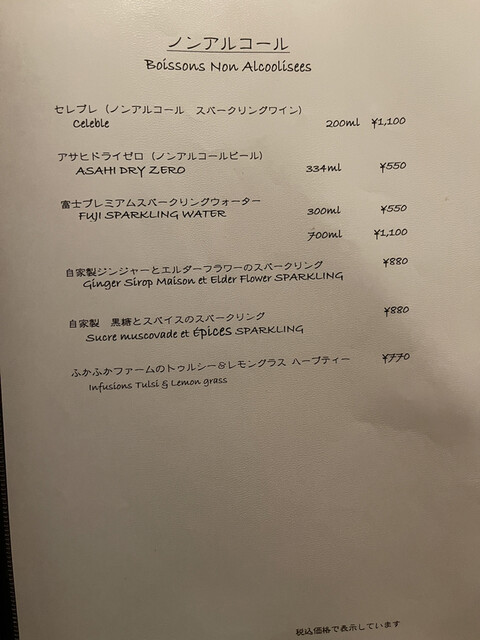 ノンアルコール
Boissons Non Alcoolisees
セレブレ (ノンアルコール スパークリングワイン)
Celeble 200ml ¥1,100
アサヒドライゼロ (ノンアルコールビール)
ASAHI DRY ZERO 334ml ¥550
富士プレミアムスパークリングウォーター
FUJI SPARKLING WATER 300ml ¥550
700ml ¥1,100
自家製ジンジャーとエルダーフラワーのスパークリング ¥880
Ginger Sirop Maison et Elder Flower SPARKLING
自家製 黒糖とスパイスのスパークリング ¥880
Sucre muscovade et Épices SPARKLING
ふかふかファームのトゥルシー&レモングラス ハーブティー ¥770
Infusions Tulsi & Lemon grass
税込価格で表示しています